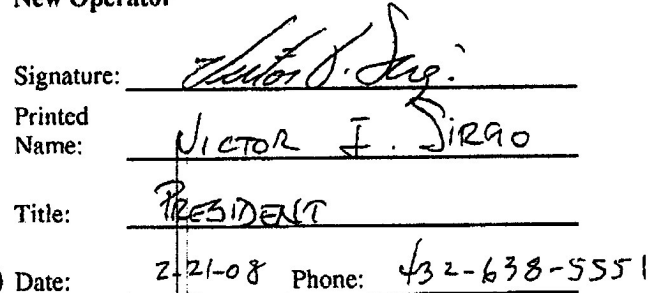 New Operator
Signature: Victor J. Sirgo
Printed
Name: VICTOR J. SIRGO
Title: PRESIDENT
Date: 2-21-08 Phone: 432-638-5551